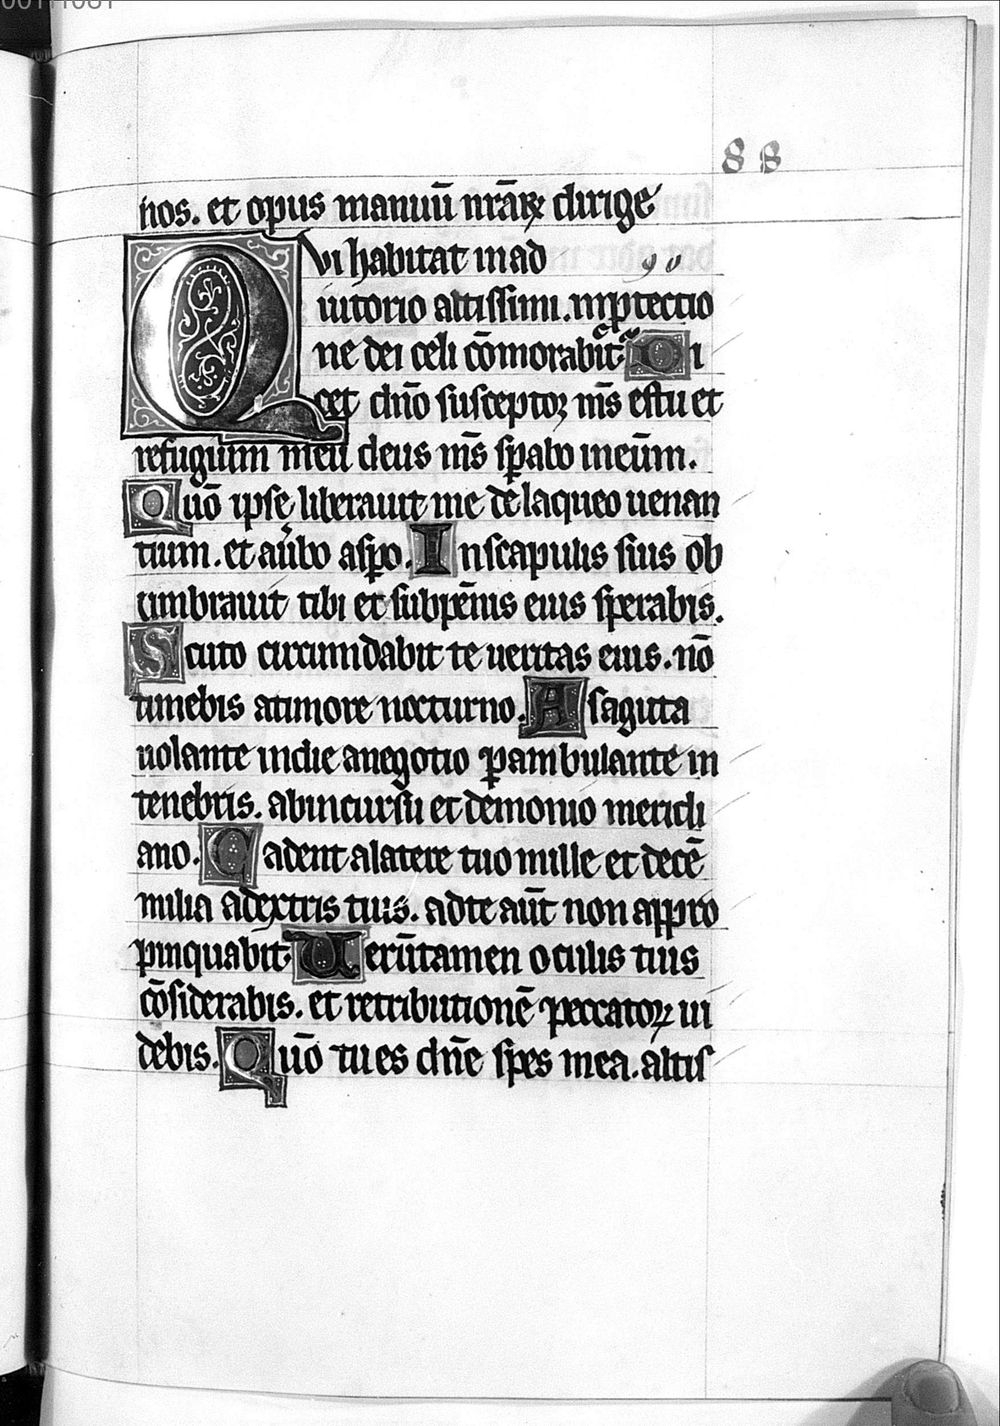 88
nos. et opus manuū nr̄aꝝ dirige
Qui habitat in ad
iutorio altissimi. in ꝓtectio
ne dei celi cōmorabit͛. Di
cet dn̄o susceptor ms̄ es tu et
refugium meū deus ms̄ sꝑabo in eūm.
Quō ipse liberauit me de laqueo uenan
tium. et a ūbo asꝑo. In scapulis suis ob
umbrauit tibi et sub pēnis eius sperabis.
Scuto circumdabit te ueritas eius. nō
timebis a timore nocturno. A sagitta
uolante in die a negotio ꝑambulante in
tenebris. ab incursu et demonio meridi
ano. Cadent a latere tuo mille et decē
milia a dextris tuis. ad te aūt non appro
pinquabit. Uerūtamen oculis tuis
cōsiderabis. et retributionē peccatoꝝ ui
debis. Quō tu es dn̄e spes mea. altis